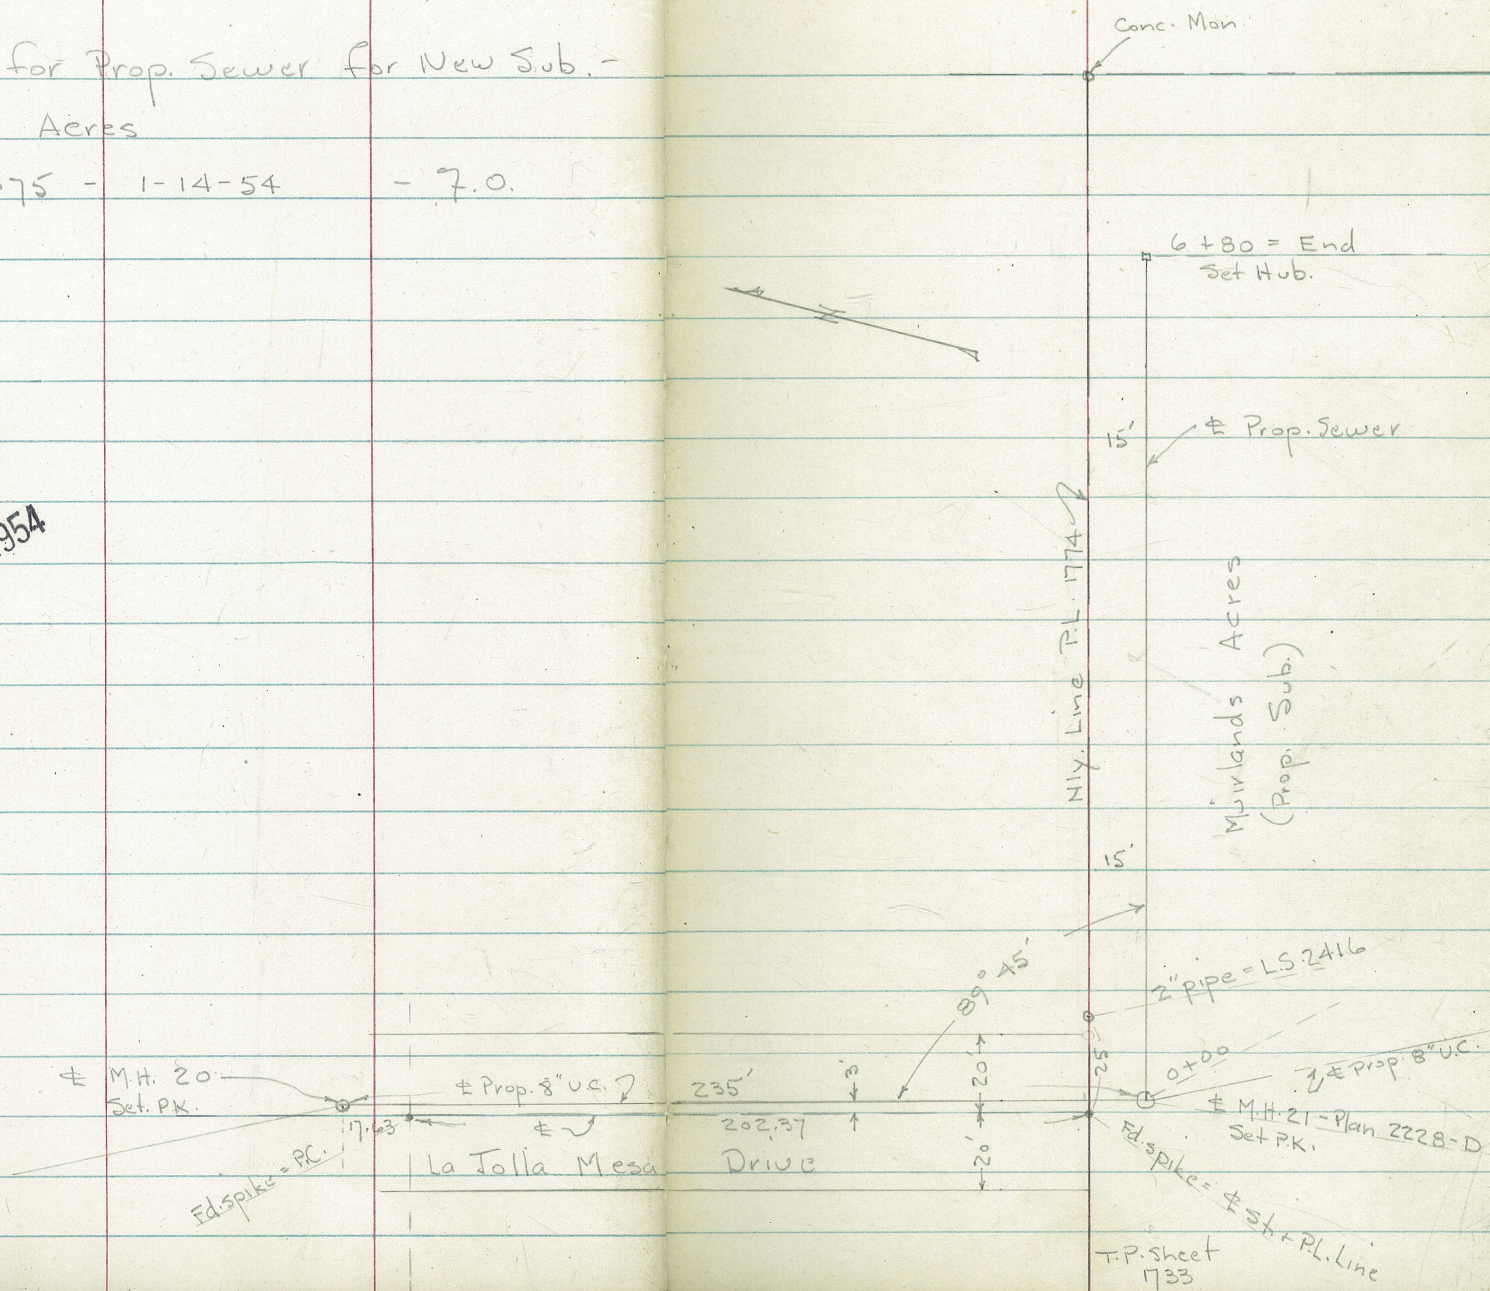 for Prop. Sewer for New Sub.-
Acres
75 - 1-14-54 - 7.0.
954
Conc. Mon.
6+80 = End
Set Hub.
N
15'
℄ Prop. Sewer
Nly. Line P.L. 1774
Muirlands Acres
(Prop. Sub.)
15'
89° 45'
2" pipe = L.S. 2416
25
0+00
℄ Prop. 8" V.C.
℄ M.H. 20
Set. P.K.
℄ Prop. 8" V.C.
235'
3'
20'
℄ M.H. 21 - Plan 2228-D
Set P.K.
17.63
℄
202.37
20'
La Jolla Mesa Drive
Fd. spike = P.C.
Fd. spike = ℄ St. + P.L. Line
T.P. Sheet
1733